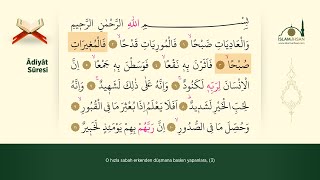 İSLAMVEİHSAN
Âdiyât
Sûresi
بِسْمِ اللهِ الرَّحْمٰنِ الرَّحِيمِ
وَالْعَادِيَاتِ ضَبْحًا ۞ فَالْمُورِيَاتِ قَدْحًا ۞ فَالْمُغِيرَاتِ
صُبْحًا ۞ فَاَثَرْنَ بِهِ نَقْعًا ۞ فَوَسَطْنَ بِهِ جَمْعًا ۞ اِنَّ
الْاِنْسَانَ لِرَبِّهِ لَكَنُودٌ ۞ وَاِنَّهُ عَلٰى ذٰلِكَ لَشَهِيدٌ ۞ وَاِنَّهُ
لِحُبِّ الْخَيْرِ لَشَدِيدٌ ۞ اَفَلَا يَعْلَمُ اِذَا بُعْثِرَ مَا فِى الْقُبُورِ ۞
وَحُصِّلَ مَا فِى الصُّدُورِ ۞ اِنَّ رَبَّهُمْ بِهِمْ يَوْمَئِذٍ لَخَبِيرٌ ۞
O hızla sabah erkenden düşmana baskın yapanlara, (3)